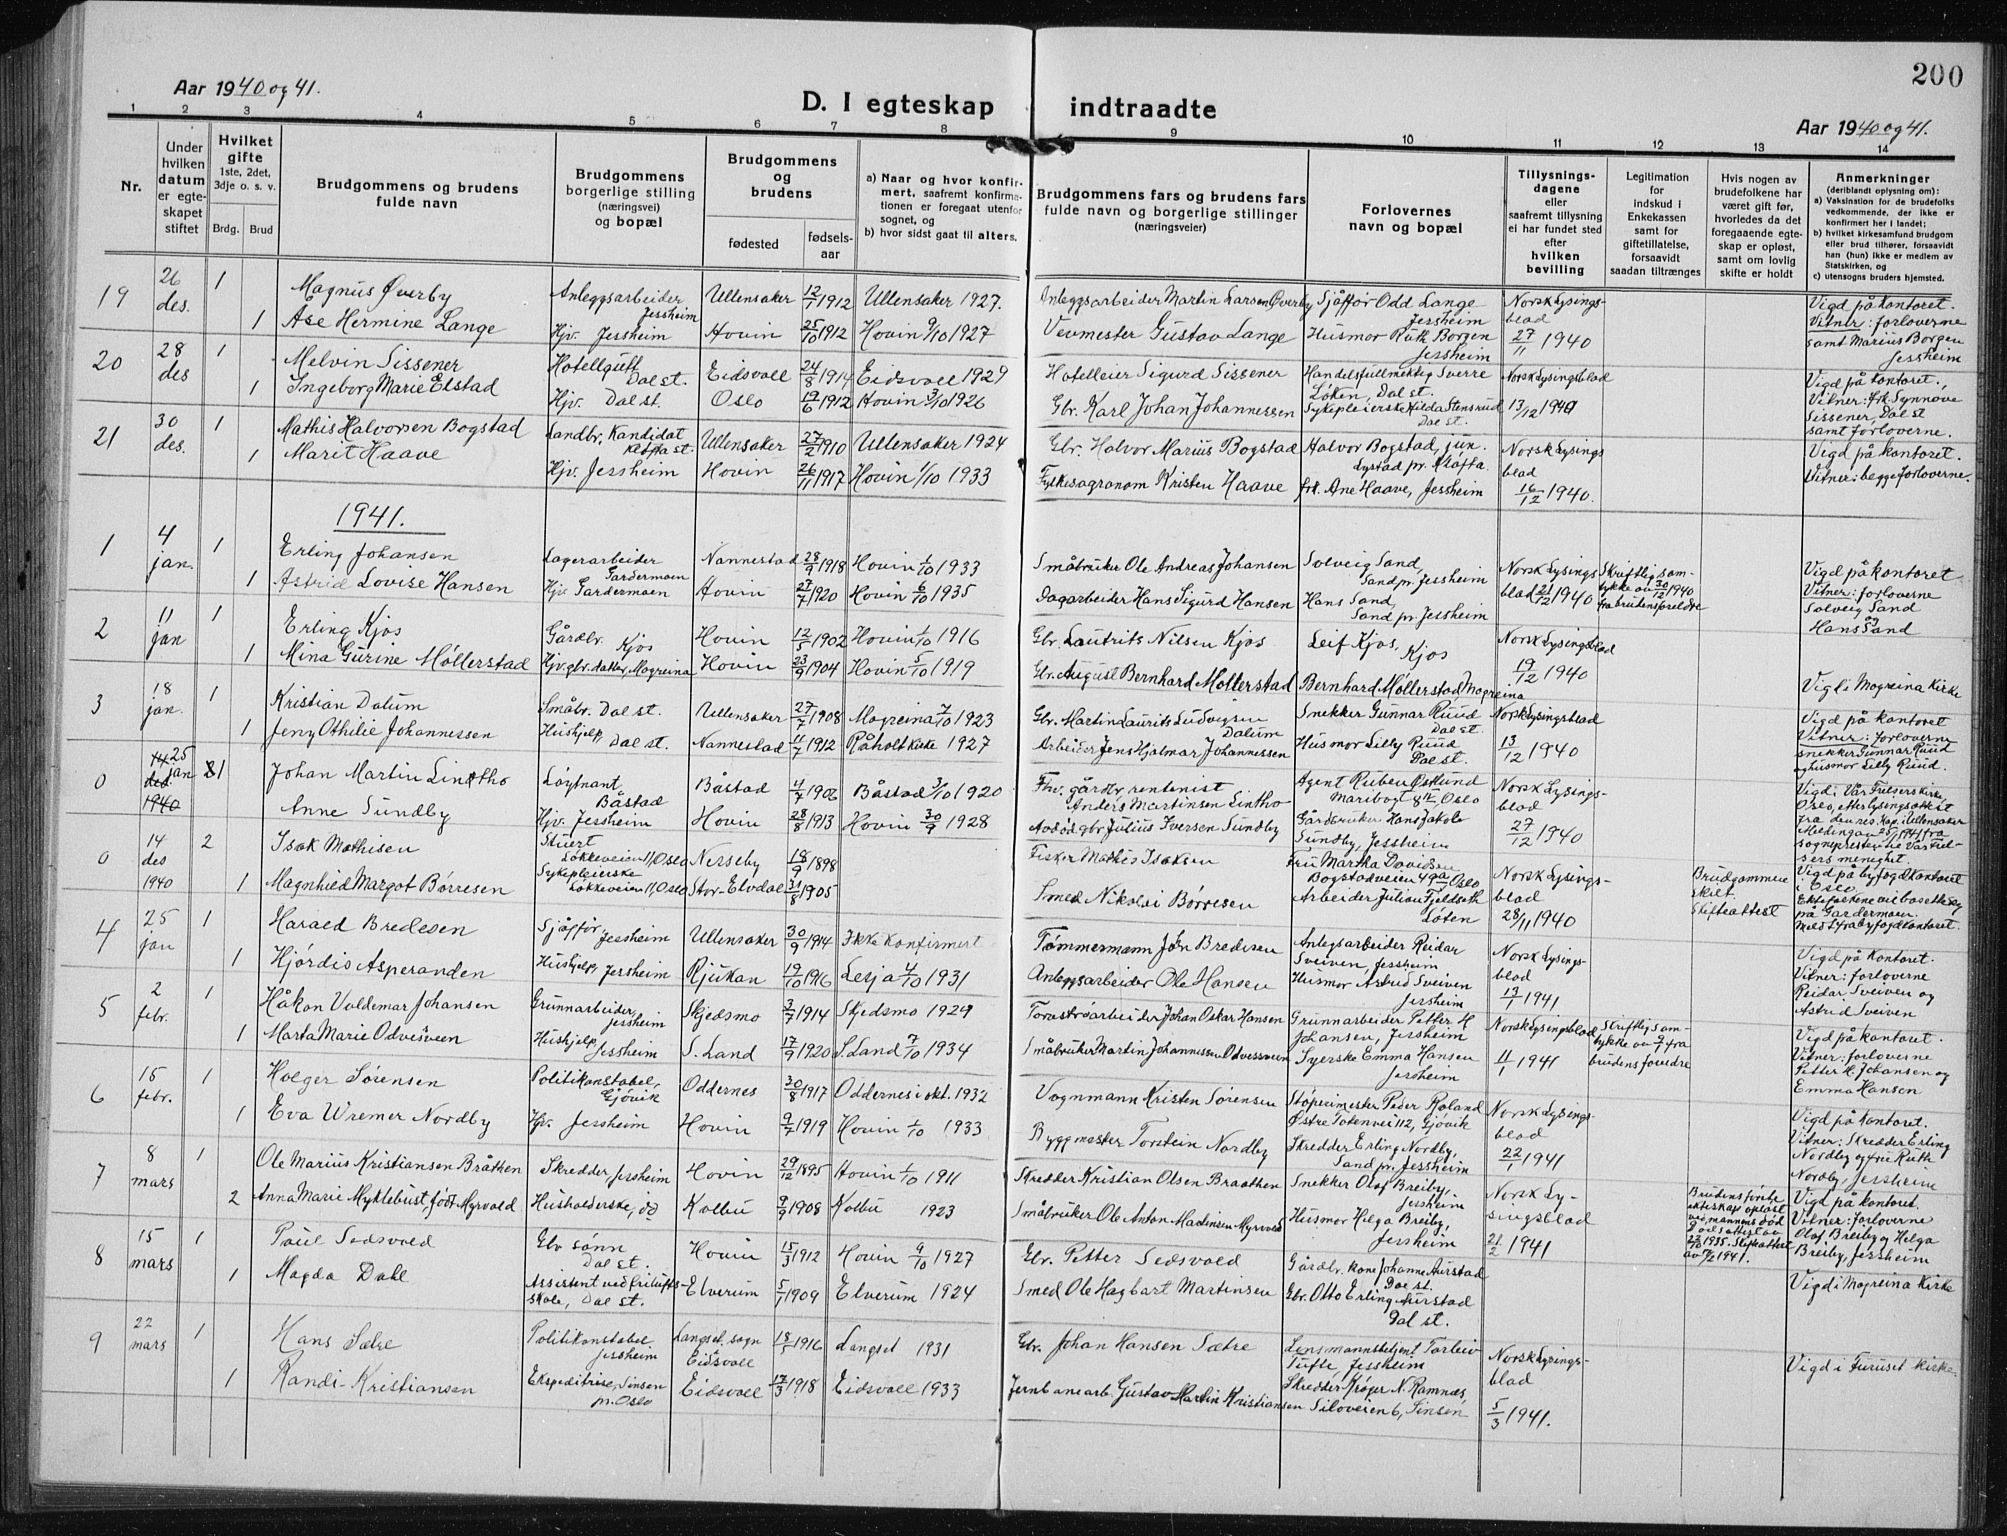 200
Aar 1940 og 41.
D. I egteskap indtraadte
Aar 1940 og 41.
1 2 3 4 5 6 7 8 9 10 11 12 13 14
Nr.
Under hvilken datum er egteskapet stiftet
Hvilket gifte 1ste, 2det, 3dje o. s. v.
Brdg. Brud
Brudgommens og brudens fulde navn
Brudgommens borgerlige stilling (næringsvei) og bopæl
Brudgommens og brudens
fødested
fødselsaar
a) Naar og hvor konfirmert, saafremt konfirmationen er foregaat utenfor sognet, og
b) hvor sidst gaat til alters.
Brudgommens fars og brudens fars fulde navn og borgerlige stillinger (næringsveier)
Forlovernes navn og bopæl
Tillysningsdagene eller saafremt tillysning ei har fundet sted efter hvilken bevilling
Legitimation for indskud i Enkekassen samt for giftetillatelse, forsaavidt saadan tiltrænges
Hvis nogen av brudefolkene har været gift før, hvorledes da det foregaaende egteskap er opløst, samt om lovlig skifte er holdt
Anmerkninger (deriblandt oplysning om):
a) Vaksination for de brudefolks vedkommende, der ikke er konfirmert her i landet;
b) hvilket kirkesamfund brudgom eller brud tilhører, forsaavidt han (hun) ikke er medlem av Statskirken, og
c) utensogns bruders hjemsted.
19 26 des. 1 Magnus Øverby Anleggsarbeider Jessheim Ullensaker 12/7 1912 Ullensaker 1927. Anleggsarbeider Martin Larsen Øverby Sjåffør Odd Lange Jessheim Norsk Lysingsblad 27/11 1940 Vigd på kontoret. Vitner: forloverne samt Marius Borgen Jessheim
1 Åse Hermine Lange Hjv. Jessheim Hovin 25/10 1912 Hovin 9/10 1927 Vevmester Gustav Lange Husmor Ruth Borgen Jessheim
20 28 des 1 Melvin Sissener Hotellgutt Dal st. Eidsvoll 24/8 1914 Eidsvoll 1929 Hotelleier Sigurd Sissener Handelsfullmektig Sverre Løken, Dal st. Norsk Lysingsblad 13/12 1940 Vigd på kontoret. Vitner: frk. Synnøve Sissener, Dal st samt forloverne.
1 Ingeborg Marie Elstad Hjv. Dal st. Oslo 19/6 1912 Hovin 3/10 1926 Gbr. Karl Johan Johannessen Sykepleierske Hilda Stensrud Dal st.
21 30 des. 1 Mathis Halvorsen Bogstad Landbr. Kandidat Kløfta st. Ullensaker 27/2 1910 Ullensaker 1924 Gbr. Halvor Marius Bogstad Halvor Bogstad, jun. Lystad pr. Kløfta. Norsk Lysingsblad 16/12 1940. Vigd på kontoret. Vitner: begge forloverne.
1 Marit Haave Hjv. Jessheim Hovin 26/11 1917 Hovin 1/10 1933 Fylkesagronom Kristen Haave frk. Ane Haave, Jessheim
1941.
1 4 jan. 1 Erling Johansen Lagerarbeider Gardermoen Nannestad 28/9 1918 Hovin 1/10 1933 Småbruker Ole Andreas Johansen Solveig Sand Sand pr. Jessheim Norsk Lysingsblad 21/12 1940 Skriftlig samtykke av 30/12 1940 fra brudens foreldre Vigd på kontoret Vitner: forloverne Solveig Sand og Hans Sand
1 Astrid Lovise Hansen Hjv. Gardermoen Hovin 27/7 1920 Hovin 6/10 1935 Dagarbeider Hans Sigurd Hansen Hans Sand, Sand pr. Jessheim
2 11 jan 1 Erling Kjos Gårdbr. Kjos Hovin 12/5 1902 Hovin 1/10 1916 Gbr. Lautrits Nilsen Kjos Leif Kjos, Kjos Norsk Lysingsblad 19/12 1940 Vigd i Mogreina Kirke
1 Mina Gurine Møllerstad Hjv. gbr. datter, Mogreina Hovin 23/9 1904 Hovin 5/10 1919 Gbr. August Bernhard Møllerstad Bernhard Møllerstad Mogreina
3 18 jan. 1 Kristian Dalum Småbr. Dal st. Ullensaker 27/7 1908 Mogreina 7/10 1923 Gbr. Martin Laurits Ludvigsen Dalum Snekker Gunnar Ruud Dal st. Norsk Lysingsblad 13/12 1940 Vigd på kontoret Vitner: forloverne snekker Gunnar Ruud og husmor Lilly Ruud.
1 Jeny Othilie Johannessen Hushjelp, Dal st. Nannestad 11/7 1912 Råholt Kirke 1927 Arbeider Jens Hjalmar Johannessen Husmor Lilly Ruud Dal st.
0 14 25 des jan 1940 1 Johan Martin Lindtho Løytnant, Båstad Båstad 4/7 1906 Båstad 3/10 1920 Fhv. gårdbr. rentenist Anders Martinsen Lintho Agent Ruben Østlund Maribogt 8 II, Oslo Norsk Lysingsblad 27/12 1940 Vigd i Vår Frelsers Kirke, Oslo, etter lysingsattest fra den res. kap. i Ullensaker Melding av 25/1 1941 fra sognepresten i Vår Frelsers menighet.
Anne Sundby Hjv. Jessheim Hovin 28/8 1913 Hovin 30/9 1928 Avdød gbr. Julius Iversen Sundby Gårdbruker Hans Jakob Sundby, Jessheim
0 14 des 1940 2 Isak Mathisen Stuert Løkkeveien 11, Oslo Nesseby 18/9 1898 Fisker Mathis Isaksen Fru Martha Davidsen Bogstadveien 49a, Oslo Norsk Lysingsblad 28/11 1940 Brudgommen skilt Skifteattest Vigd på byfogdkontoret i Oslo Ektefolkene vil bosette seg på Gardermoen. Meld. fra byfogdkontoret.
1 Magnhild Margot Børresen Sykepleierske Løkkeveien 11, Oslo Stor-Elvdal 31/8 1905 Smed Nikolai Børresen Arbeider Julian Fjeldseth Løten
4 25 jan 1 Harald Bredesen Sjåffør, Jessheim Ullensaker 30/9 1914 Ikke konfirmert Tømmermann John Bredesen Anlegsarbeider Reidar Sveiven, Jessheim Norsk Lysingsblad 13/1 1941 Vigd på kontoret. Vitner: forloverne Reidar Sveiven og Astrid Sveiven
1 Hjørdis Asperanden Hushjelp, Jessheim Rjukan 19/10 1916 Lesja 4/10 1931 Anleggsarbeider Ole Hansen Husmor Astrid Sveiven Jessheim
5 2 febr. 1 Håkon Valdemar Johansen Grunnarbeider, Jessheim Skjedsmo 3/7 1914 Skjedsmo 1929 Torvstrøarbeider Johan Oskar Hansen Grunnarbeider Petter H Johansen, Jessheim Norsk Lysingsblad 11/1 1941 Skriftlig samtykke av 9/1 fra brudens foreldre Vigd på kontoret. Vitner: forloverne Petter H. Johansen og Emma Hansen
1 Marta Marie Odvesveen Hushjelp, Jessheim S. Land 17/9 1920 S. Land 7/10 1934 Småbruker Martin Johannessen Odvessveen Syerske Emma Hansen Jessheim
6 15 febr. 1 Holger Sørensen Politikonstabel, Gjøvik Oddernes 30/8 1917 Oddernes i okt. 1932 Vognmann Kristen Sørensen Støperimester Peder Roland Østre Totenvei 112, Gjøvik Norsk Lysingsblad 22/1 1941 Vigd på kontoret. Vitner: Skredder Erling Nordby og fru Ruth Nordby, Jessheim
1 Eva Wremer Nordby Hjv. Jessheim Hovin 9/7 1919 Hovin 1/10 1933 Byggmester Torstein Nordby Skredder Erling Nordby, Sand pr. Jessheim
7 8 mars 1 Ole Marius Kristiansen Bråthen Skredder, Jessheim Hovin 29/12 1895 Hovin 1/10 1911 Skredder Kristian Olsen Braathen Snekker Olaf Breiby, Jessheim Norsk Lysingsblad 21/2 1941 Brudens første ekteskap opløst ved mannens død Vigd på kontoret. Vitner: forloverne Olaf Breiby og Helga Breiby, Jessheim
2 Anna Marie Myklebust, født Myrvold Husholderske, do Kolbu 9/9 1908 Kolbu 1923 Småbruker Ole Anton Madinsen Myrvold Husmor Helga Breiby, Jessheim
8 15 mars 1 Paul Sedsvold Gbr sønn Dal st. Hovin 15/3 1912 Hovin 9/10 1927 Gbr. Petter Sedsvold Gårdbr. kone Johanne Aurstad Dal st. Vigd i Mogreina Kirke
1 Magda Dahl Assistent ved friluftsskole, Dal st. Elverum 5/1 1909 Elverum 1924 Smed Ole Hagbart Martinsen Gbr. Otto Erling Aurstad Dal st.
9 22 mars 1 Hans Sætre Politikonstabel Jessheim Langset, sogn Eidsvoll 18/1 1916 Langset 1931 Gbr. Johan Hansen Sætre Lensmannsbetjent Torleiv Tufte, Jessheim Norsk Lysingsblad 5/3 1941. Vigd i Furuset Kirke
1 Randi Kristiansen Ekspeditrise, Sinsen pr. Oslo Eidsvoll 17/3 1918 Eidsvoll 1933 Jernbanearb. Gustav Martin Kristiansen Skredder Krøger N. Ramnæs Siloveien 6, Sinsen